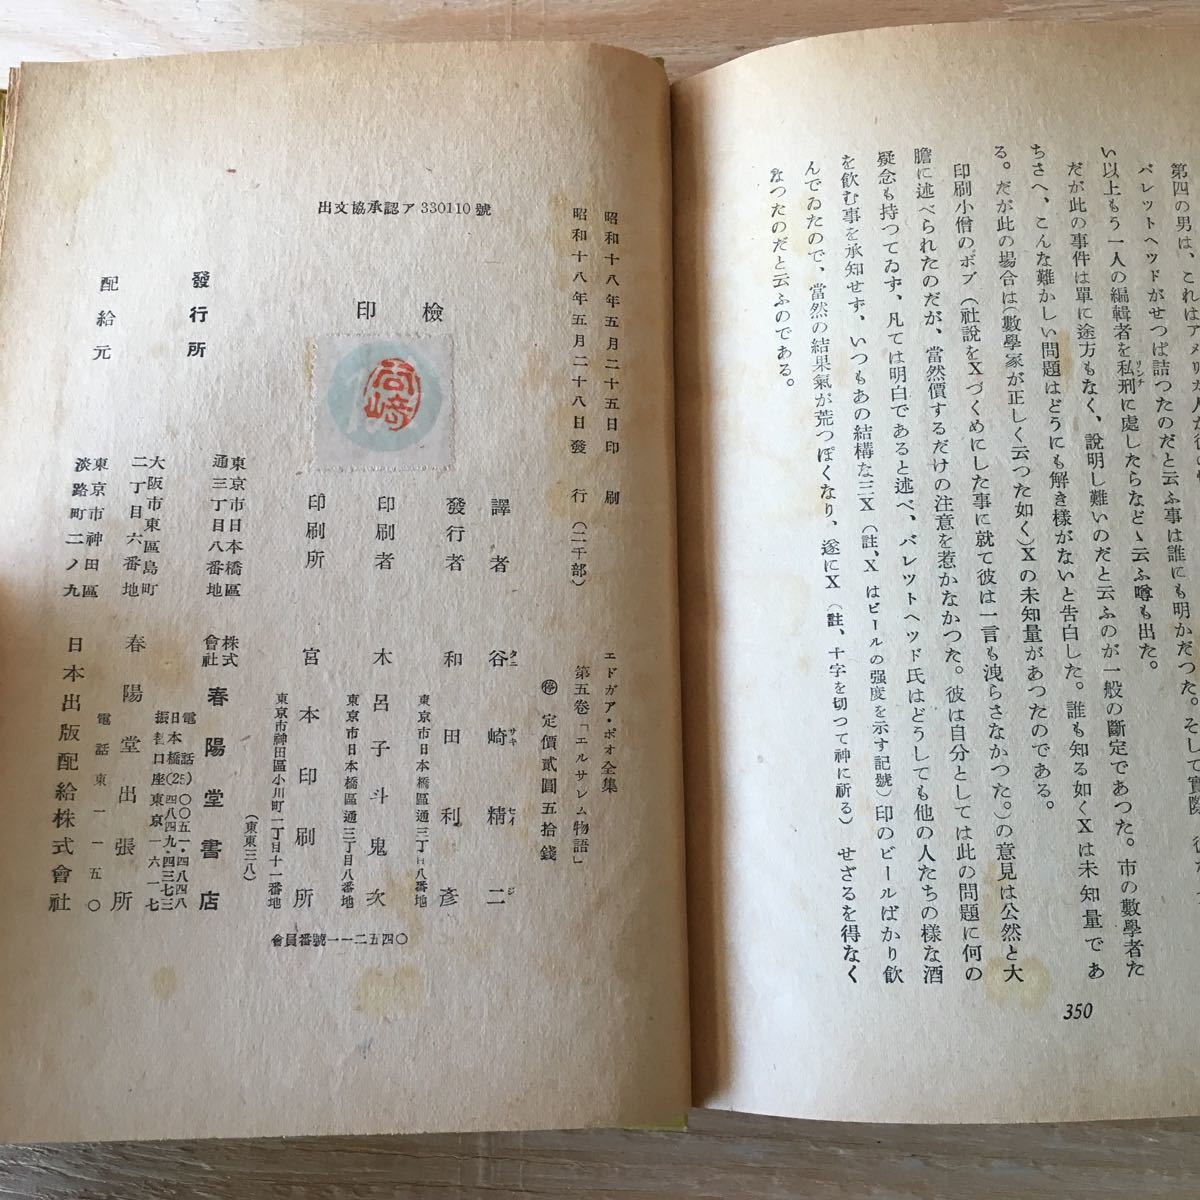 第四の男は、これはアメリカ人が
バレットヘッドがせつぱ詰つたのだと云ふ事は誰にも明かだつた。そして實際
い以上もう一人の編輯者を私刑に處したらなどゝ云ふ噂も出た。
リンチ
だが此の事件は單に途方もなく、說明し難いのだと云ふのが一般の斷定であつた。市の數學者た
ちさへ、こんな難かしい問題はどうにも解き樣がないと告白した。誰も知る如くXは未知量であ
る。だが此の場合は(數學家が正しく云つた如く)Xの未知量があつたのである。
印刷小僧のボブ(社說をXづくめにした事に就て彼は一言も洩らさなかつた。)の意見は公然と大
膽に述べられたのだが、當然價するだけの注意を惹かなかつた。彼は自分としては此の問題に何の
疑念も持つてゐず、凡ては明白であると述べ、バレツトヘッド氏はどうしても他の人たちの樣な酒
を飮む事を承知せず、いつもあの結構な三X(註、Xはビールの强度を示す記號)印のビールばかり飮
んでゐたので、當然の結果氣が荒つぽくなり、遂にX(註、十字を切つて神に祈る)せざるを得なく
なつたのだと云ふのである。
350
昭和十八年五月二十五日印刷
昭和十八年五月二十八日發行(二千部)
エドガア・ポオ全集
第五卷「エルサレム物語」
停 定價貳圓五拾錢
出文協承認ア330110號
檢印
譯者 谷崎精二
タニ サキ セイ ジ
發行者 和田利彥
東京市日本橋區通三丁目八番地
印刷者 木呂子斗鬼次
東京市日本橋區通三丁目八番地
印刷所 宮本印刷所
東京市神田區小川町一丁目十一番地
(東東三八)
會員番號一一二五四〇
發行所
東京市日本橋區
通三丁目八番地
株式會社 春陽堂書店
電話日本橋(25)〇〇五一・四八四八
四八四九・四三七三
振替口座東京一六一七
大阪市東區島町
二丁目六番地
春陽堂出張所
電話東一一五〇
配給元
東京市神田區
淡路町二ノ九
日本出版配給株式會社